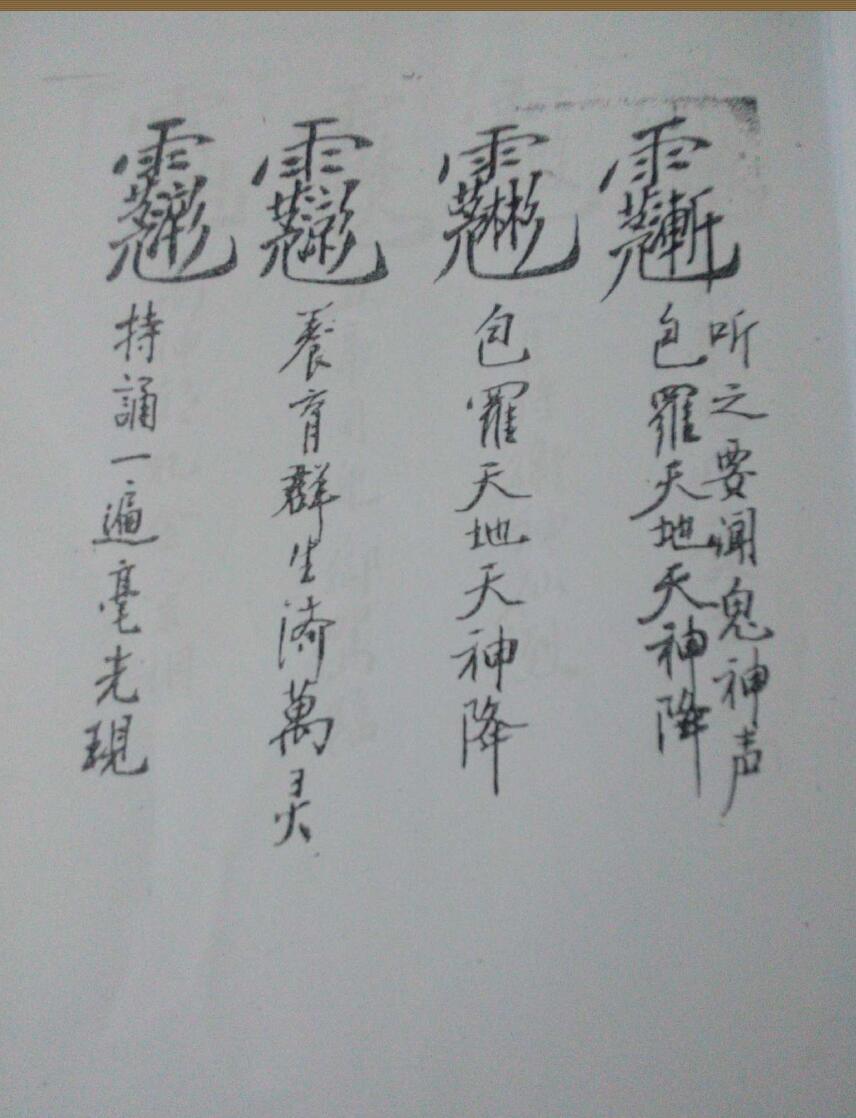 听之要闻鬼神声
包羅天地天神降
包羅天地天神降
養育群生济萬灵
持誦一遍毫光現